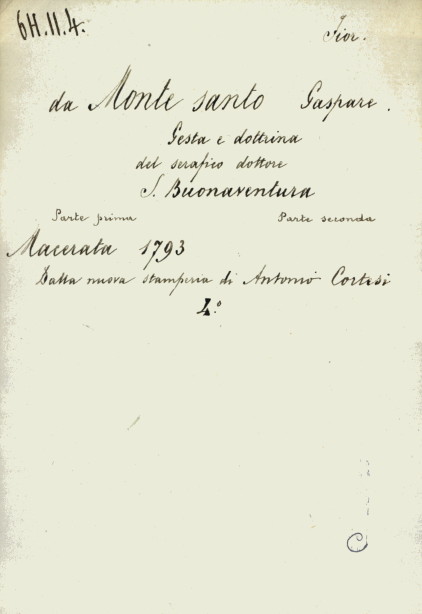 6H.11.4.
Fior.
da Monte santo Gaspare.
Gesta e dottrina
del serafico dottore
S. Buonaventura
Parte prima Parte seconda
Macerata 1793
Dalla nuova stamperia di Antonio Cortesi
4.º